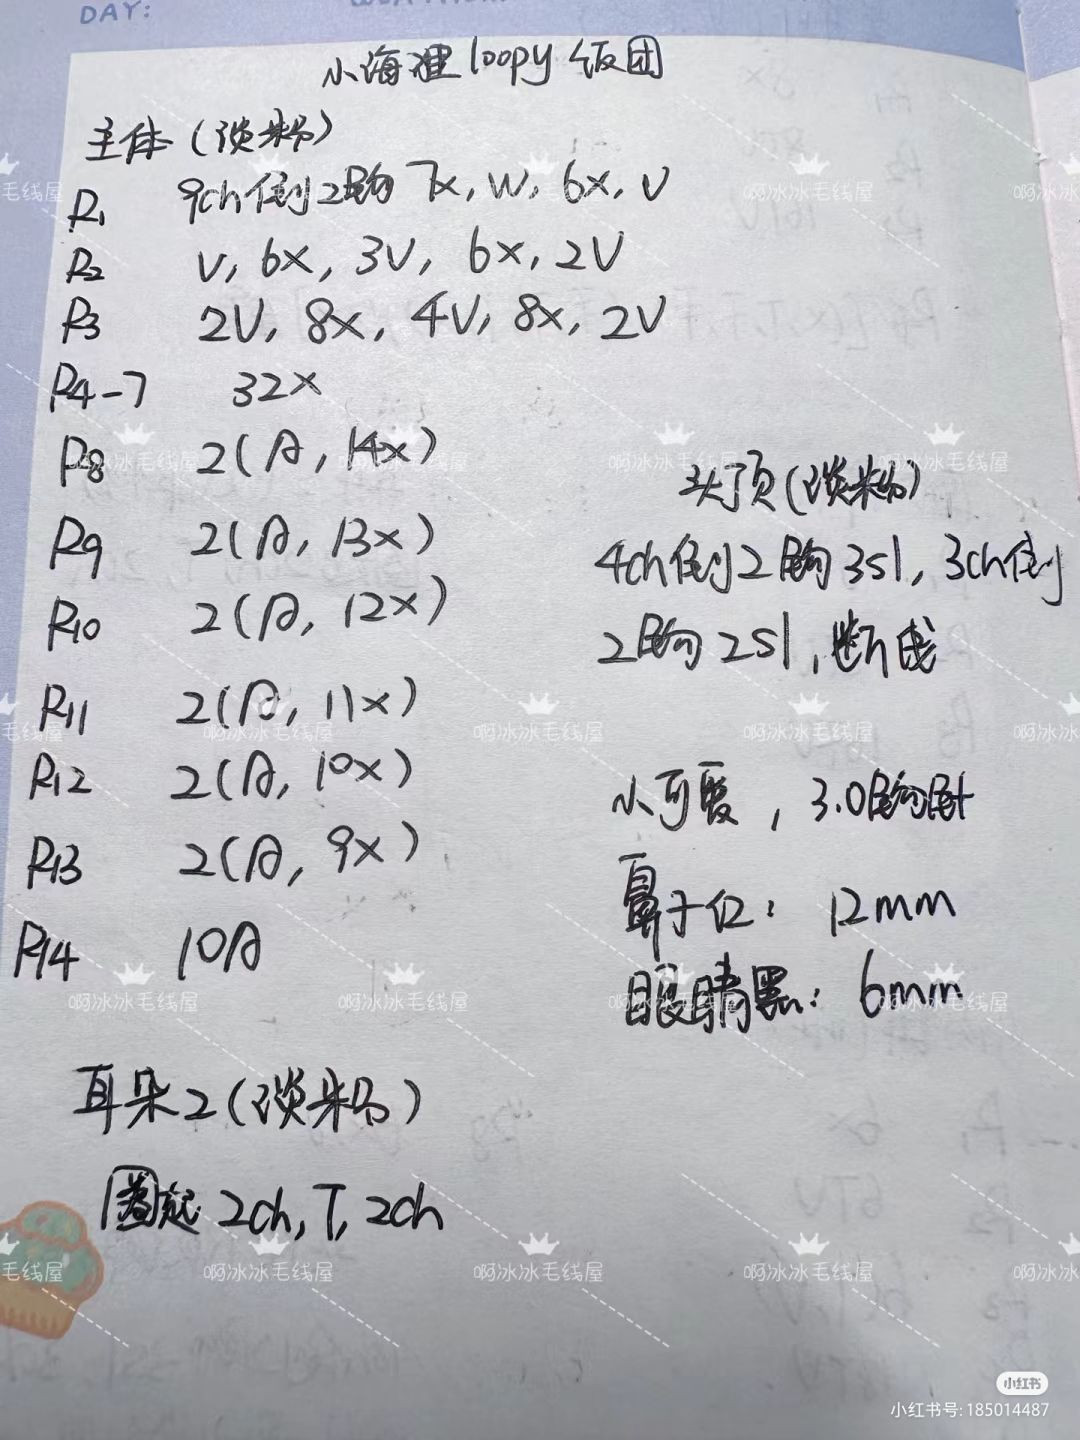 DAY:
小海狸loopy饭团
主体(淡粉)
R1 9ch倒2钩 7x, W, 6x, V
R2 V, 6x, 3V, 6x, 2V
R3 2V, 8x, 4V, 8x, 2V
R4-7 32x
R8 2(A, 14x)
R9 2(A, 13x)
R10 2(A, 12x)
R11 2(A, 11x)
R12 2(A, 10x)
R13 2(A, 9x)
R14 10A
耳朵2(淡粉)
圈起 2ch, T, 2ch
头顶(淡粉)
4ch倒2钩3sl, 3ch倒
2钩2sl, 断线
小可爱, 3.0钩针
鼻子红: 12mm
眼睛黑: 6mm
啊冰冰毛线屋
小红书
小红书号:185014487